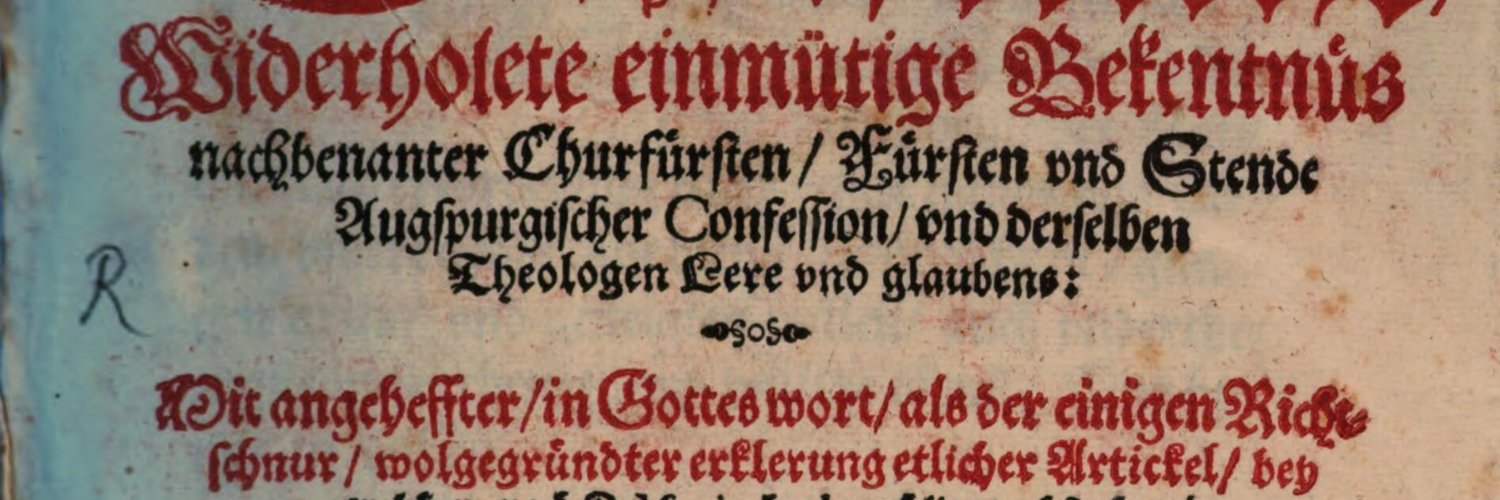 Widerholete einmütige Bekentnüs
nachbenanter Churfürsten / Fürsten vnd Stende
Augspurgischer Confession / vnd derselben
Theologen Lere vnd glaubens :
R
Mit angeheffter / in Gottes wort / als der einigen Richt-
schnur / wolgegründter erklerung etlicher Artickel / bey